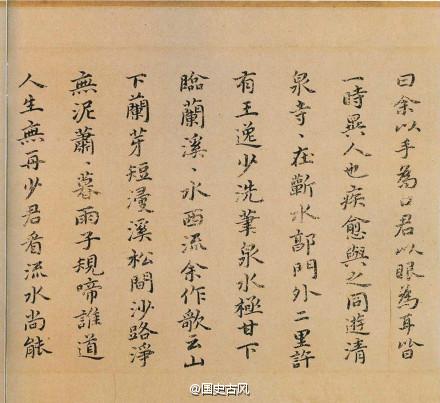 曰余以手為口君以眼為耳皆
一時異人也疾愈與之同遊清
泉寺、在蘄水郭門外二里許
有王逸少洗筆泉水極甘下
臨蘭溪、水西流余作歌云山
下蘭芽短浸溪松間沙路淨
無泥蕭、暮雨子規啼誰道
人生無再少君看流水尚能
@国史古风